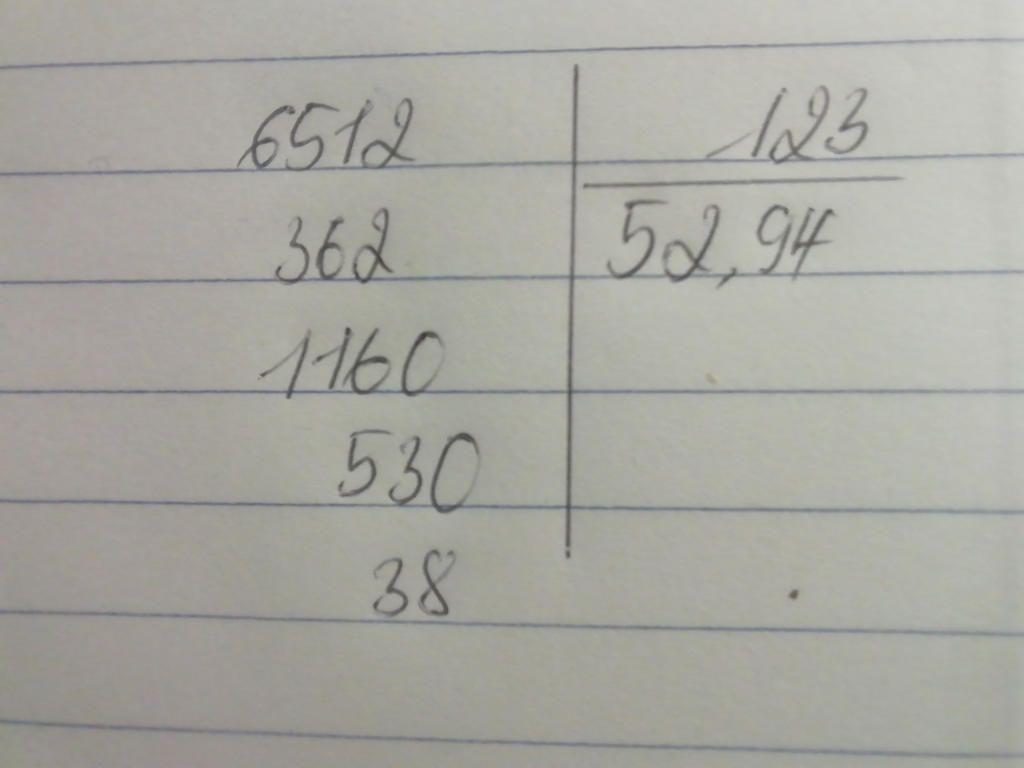 6512 123
362 52,94
1160
530
38